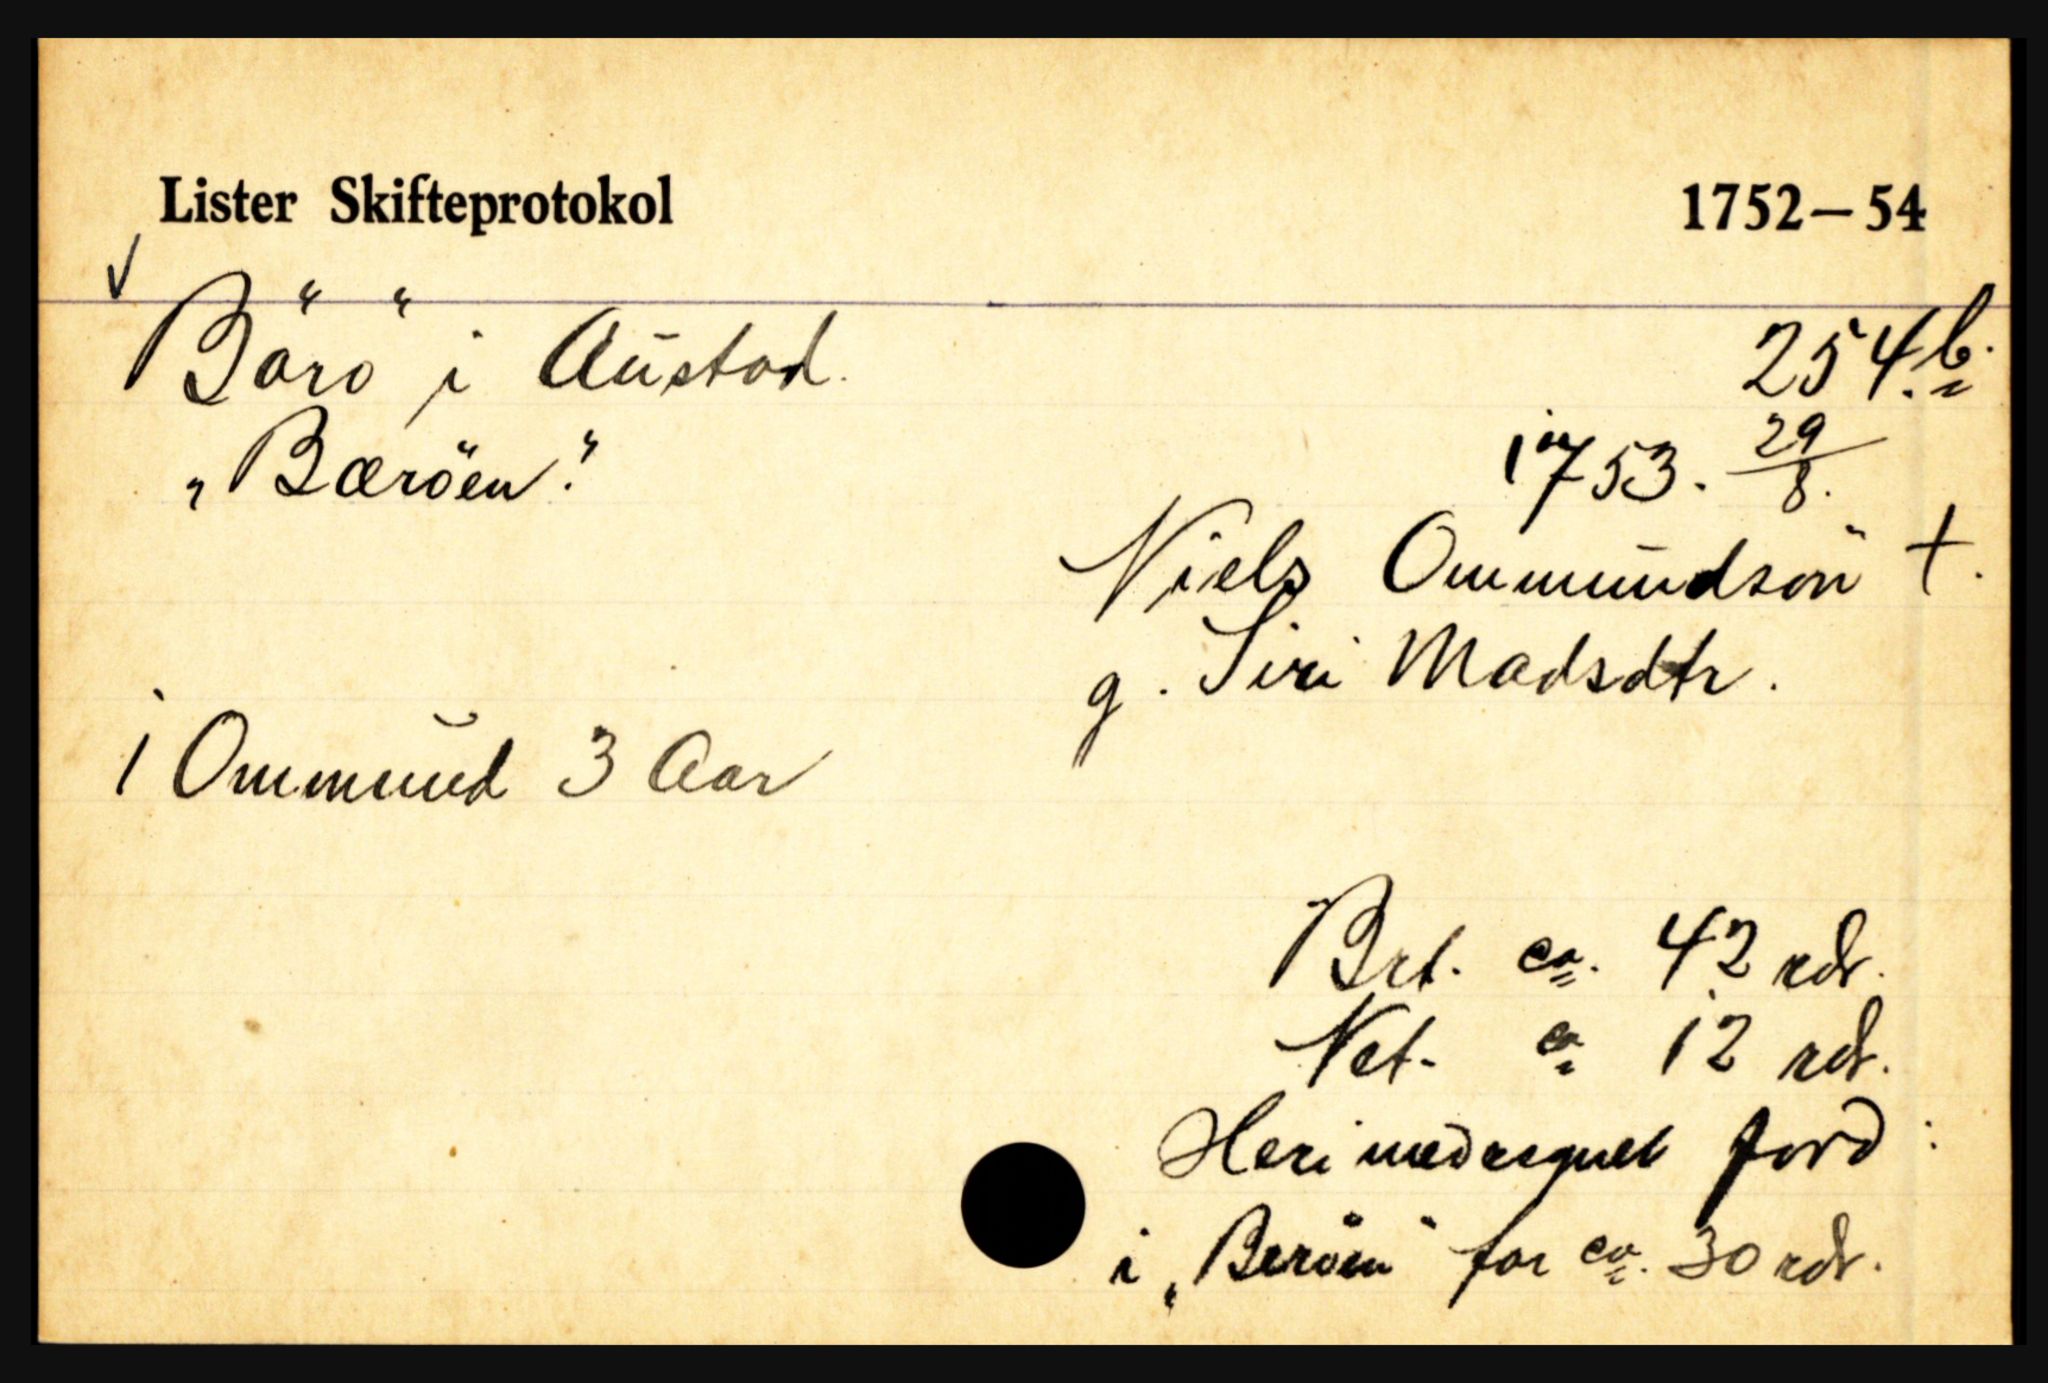 Lister Skifteprotokol 1752–54
Bärö i Austad. 254.b.
„Bæröen." 1753. 29/8.
Niels Ommundsön †.
g. Siri Madsdtr.
1 Ommund 3 Aar
Brt. ca. 42 rdr.
Net. ca 12 rdr.
Heri medregnet jord:
i „Beröen" for ca. 30 rdr.